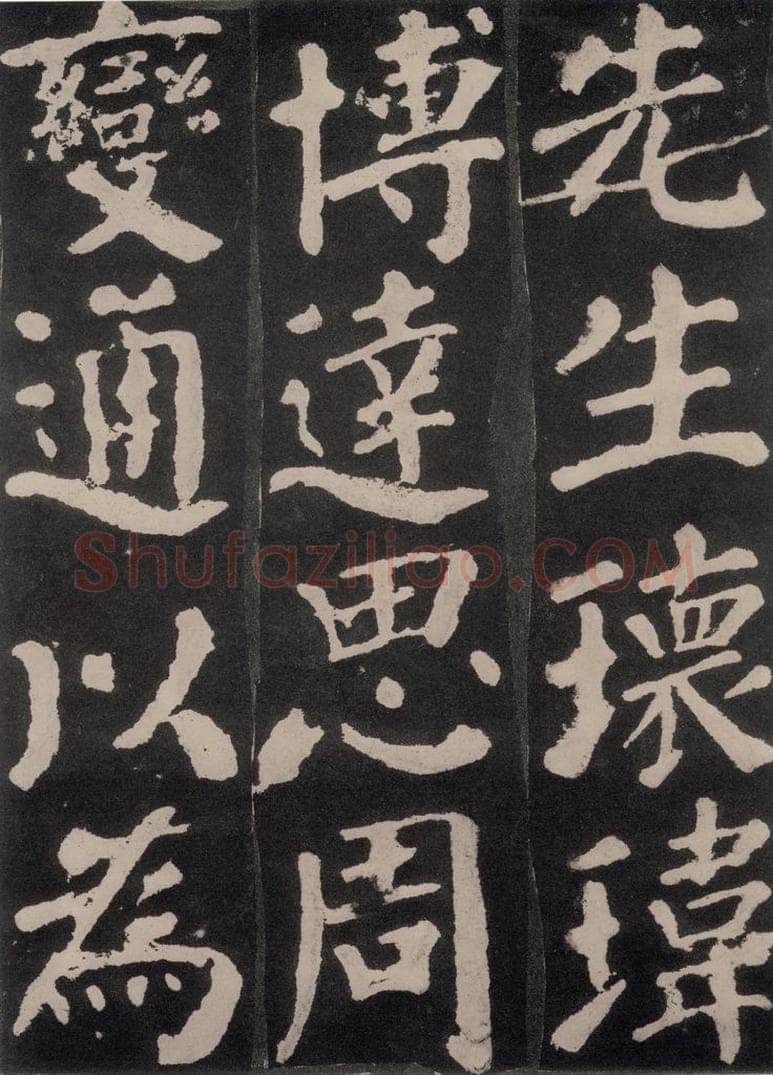 先生瓌瑋
博達思周
變通以為
Shufaziliao.COM